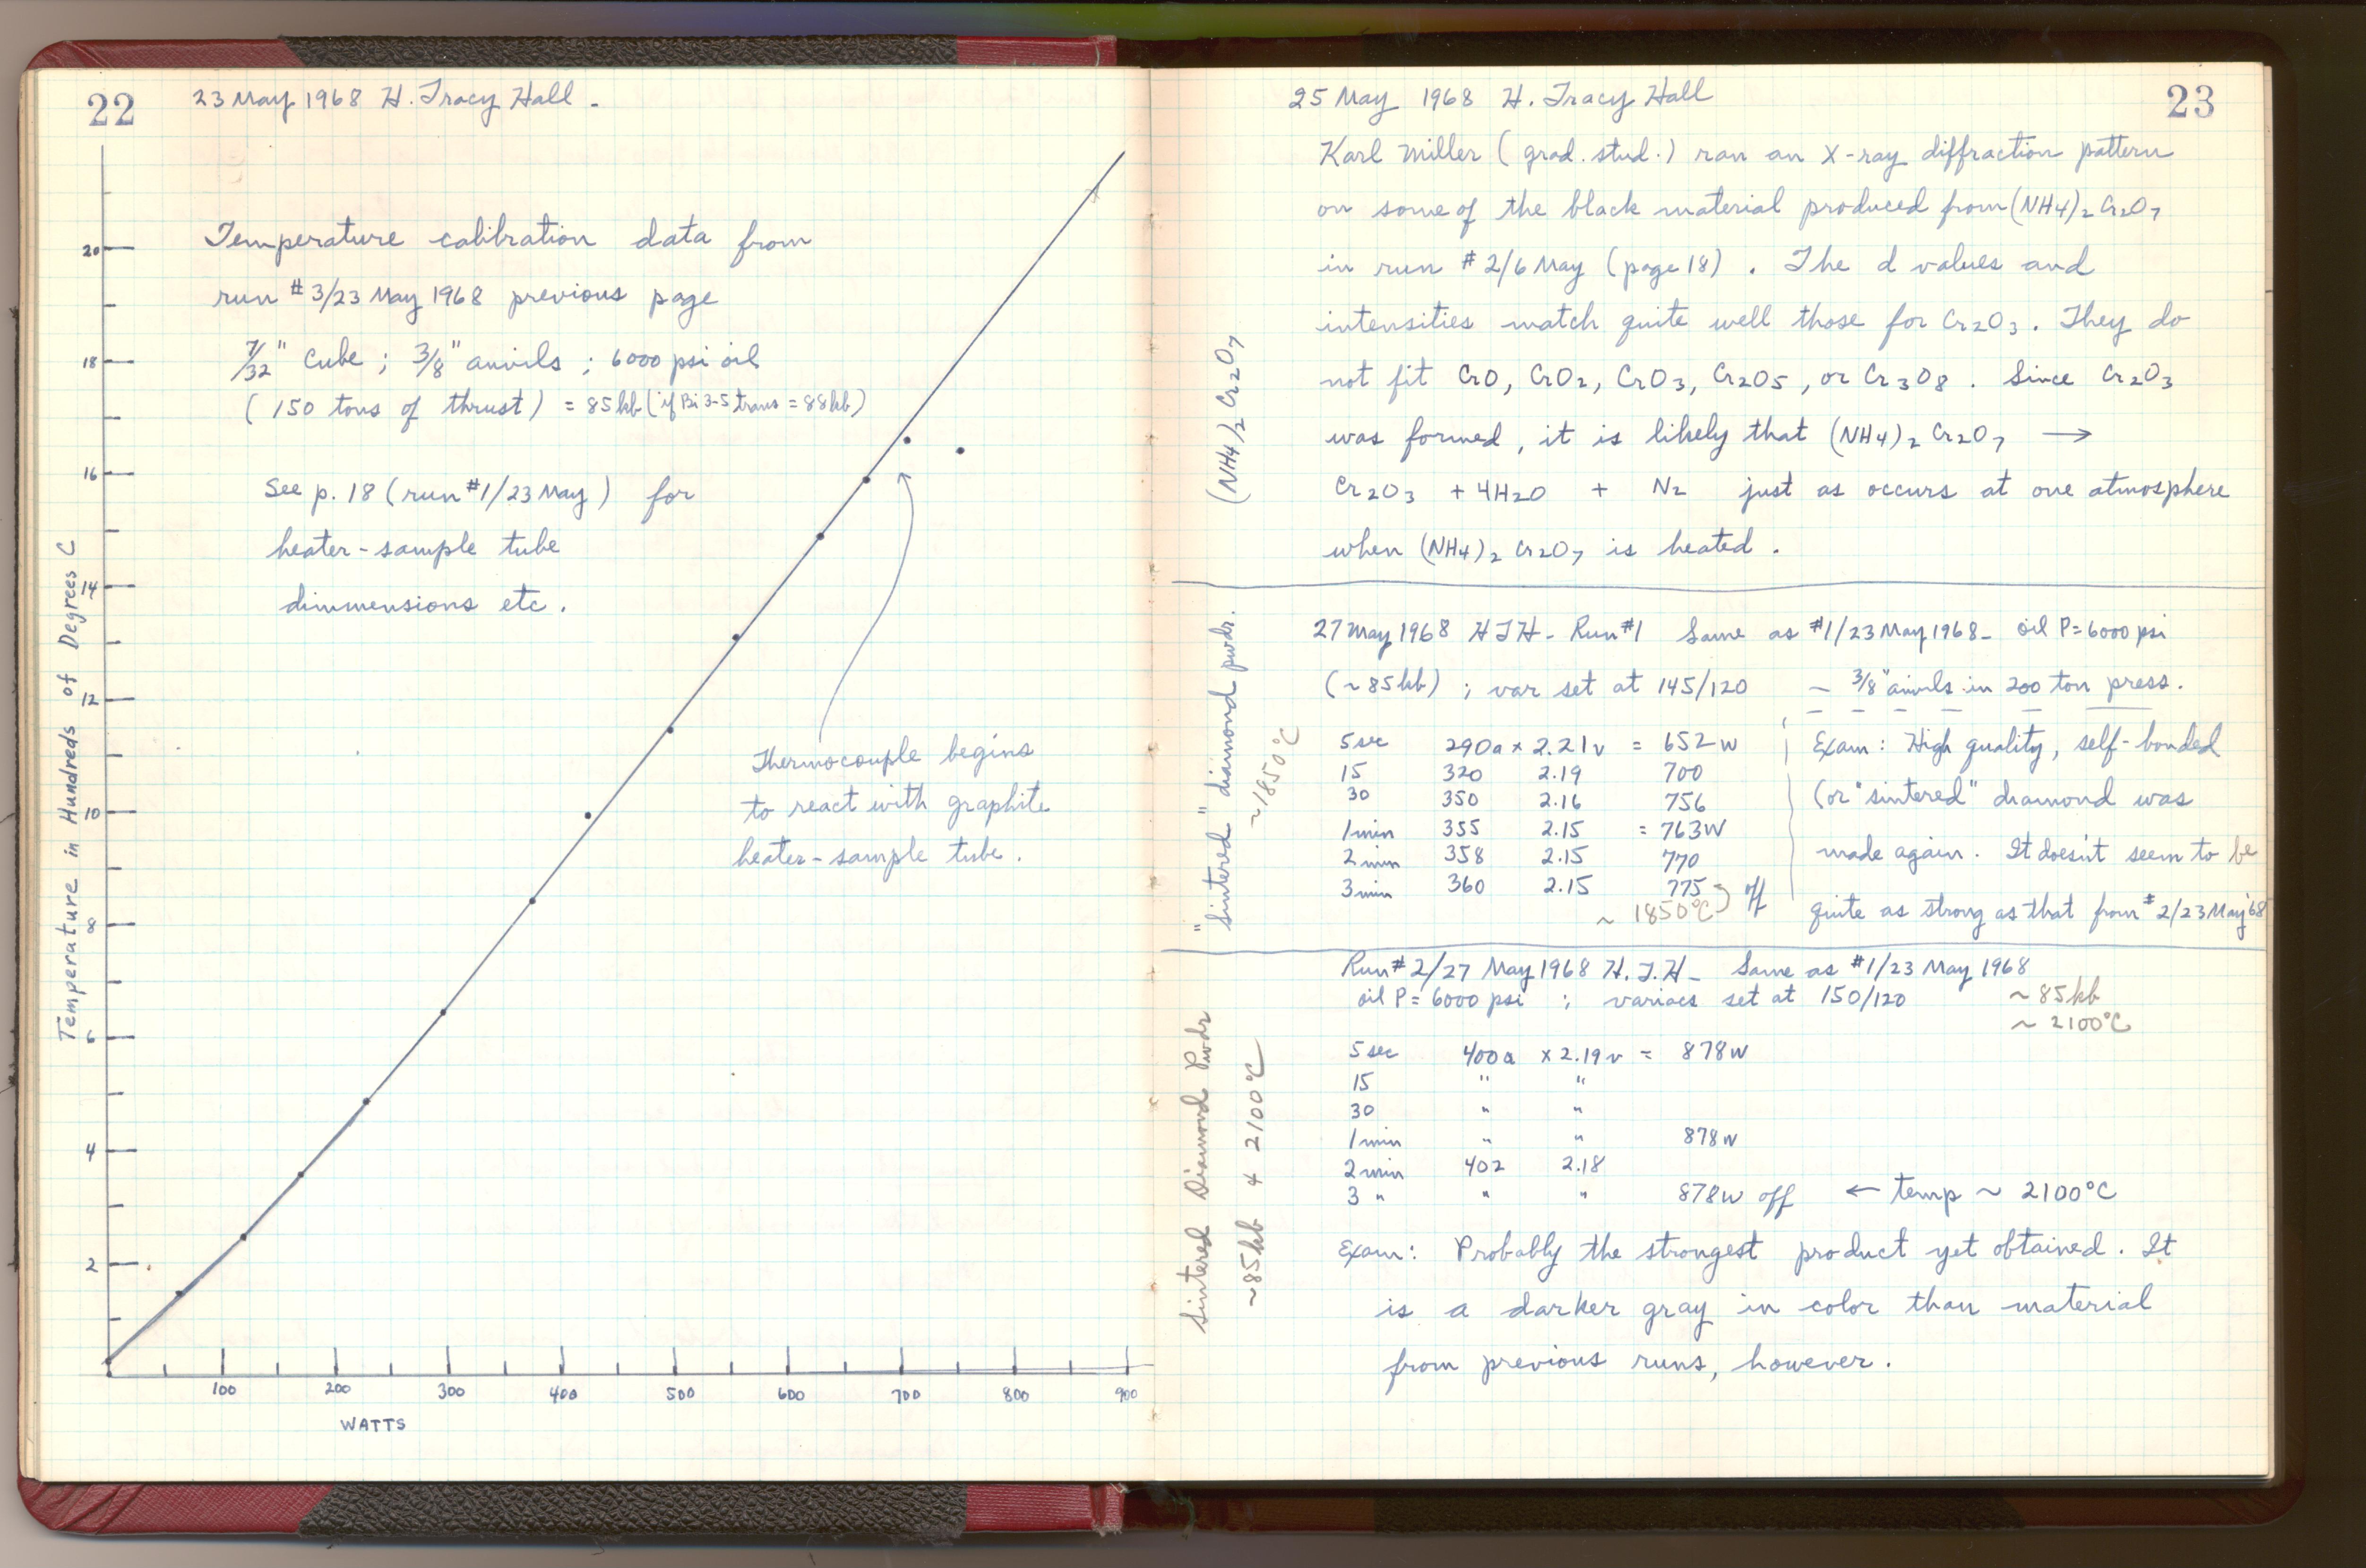 22
23 May 1968 H. Tracy Hall -
Temperature calibration data from
run #3/23 May 1968 previous page
7/32" Cube ; 3/8" anvils ; 6000 psi oil
( 150 tons of thrust ) = 85 kb (if Bi 3-5 trans = 88 kb)
See p. 18 (run #1/23 May) for
heater-sample tube
dimmensions etc.
Thermocouple begins
to react with graphite
heater-sample tube.
Temperature in Hundreds of Degrees C
20
18
16
14
12
10
8
6
4
2
100 200 300 400 500 600 700 800 900
WATTS
23
25 May 1968 H. Tracy Hall
(NH4)2 Cr2O7
Karl Miller ( grad. stud. ) ran an X-ray diffraction pattern
on some of the black material produced from (NH4)2 Cr2O7
in run #2/6 May (page 18) . The d values and
intensities match quite well those for Cr2O3. They do
not fit CrO, CrO2, CrO3, Cr2O5, or Cr3O8 . Since Cr2O3
was formed, it is likely that (NH4)2 Cr2O7 →
Cr2O3 + 4H2O + N2 just as occurs at one atmosphere
when (NH4)2 Cr2O7 is heated .
"Sintered" diamond pwdr.
~1850°C
27 May 1968 HTH - Run #1 Same as #1/23 May 1968 - oil P= 6000 psi
(~85 kb) ; var set at 145/120 - 3/8" anvils in 200 ton press.
5 sec 290a x 2.21v = 652 w
15 320 2.19 700
30 350 2.16 756
1 min 355 2.15 = 763 W
2 min 358 2.15 770
3 min 360 2.15 775 } off
~ 1850°C
Exam: High quality, self-bonded
(or "sintered" diamond was
made again. It doesn't seem to be
quite as strong as that from #2/23 May '68
Sintered Diamond Pwdr
~85kb & 2100°C
Run #2/27 May 1968 H.T.H - Same as #1/23 May 1968
oil P = 6000 psi ; variacs set at 150/120 ~ 85 kb
~ 2100°C
5 sec 400a x 2.19 v = 878 w
15 " "
30 " "
1 min " " 878 w
2 min 402 2.18
3 " " " 878 w off ← temp ~ 2100°C
Exam: Probably the strongest product yet obtained. It
is a darker gray in color than material
from previous runs, however.